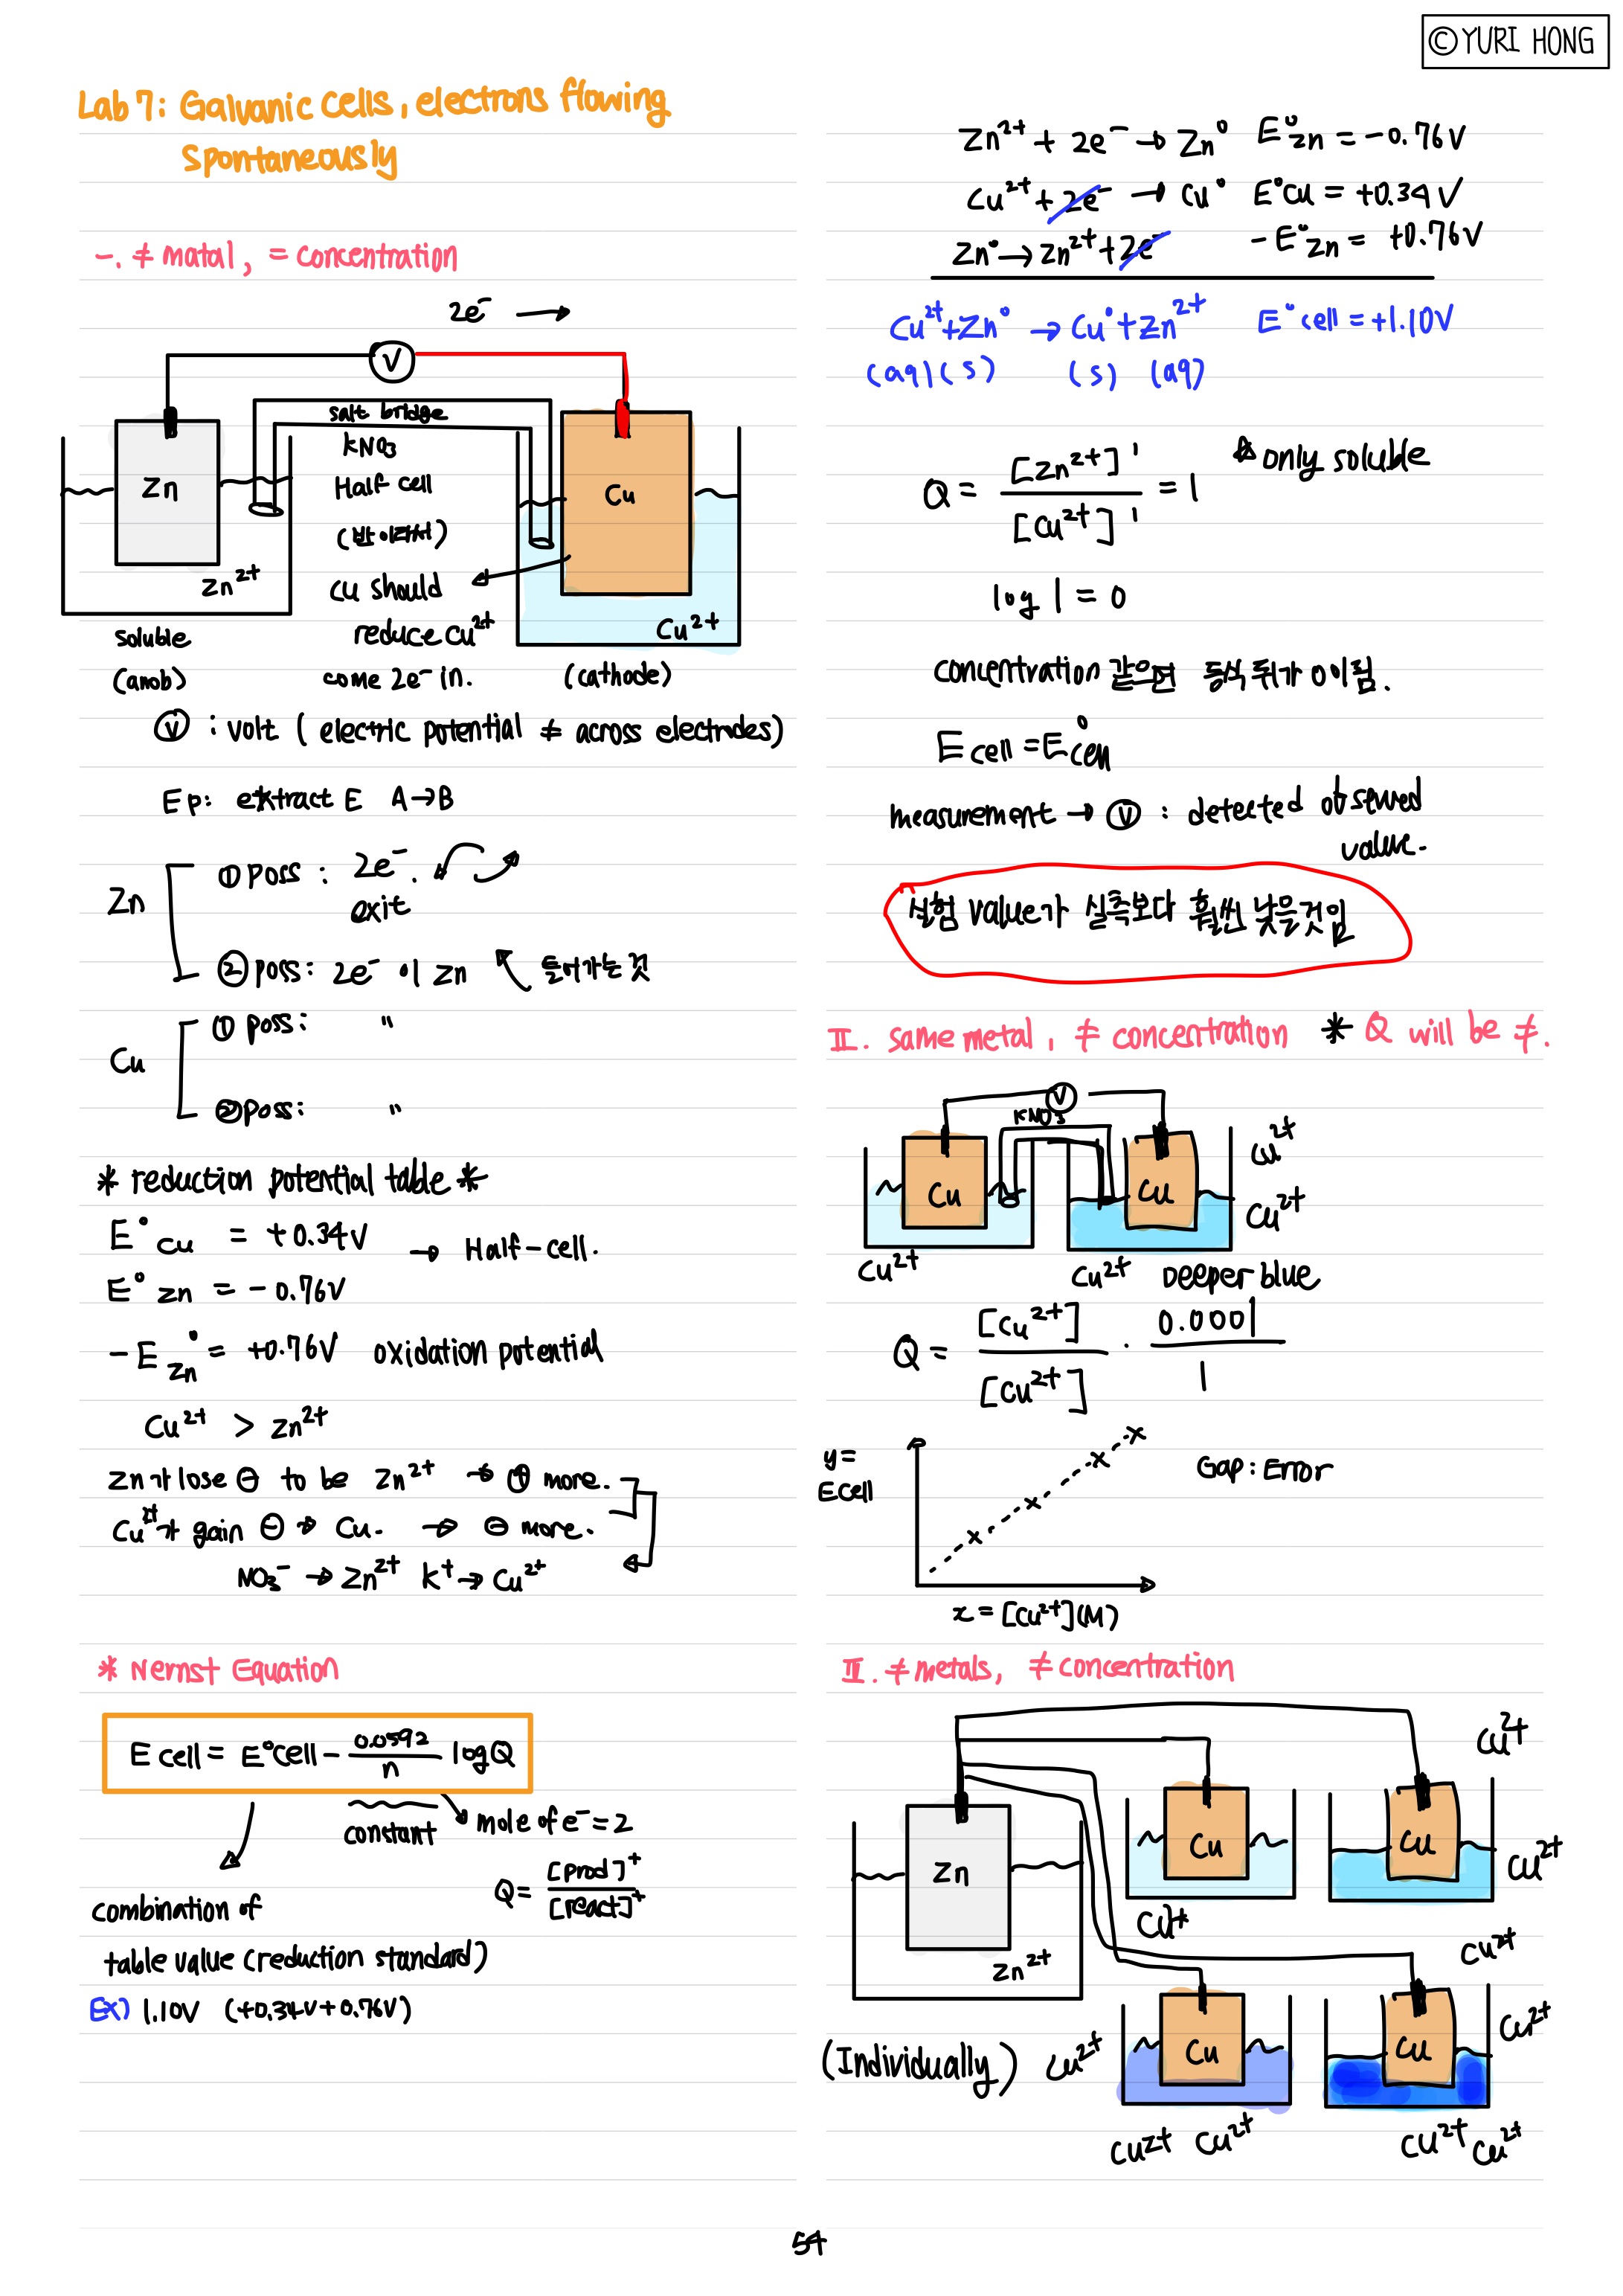 © YURI HONG
Lab 7: Galvanic cells, electrons flowing
spontaneously
-. ≠ matal, = concentration
2e⁻ →
V
salt bridge
KNO₃
Half cell
Zn
Cu
Zn²⁺
Cu should
reduce Cu²⁺
come 2e⁻ in.
Cu²⁺
soluble
(anob)
(cathode)
Ⓥ : volt ( electric potential ≠ across electrodes)
Ep: extract E A→B
Zn
① poss : 2e⁻.
exit
② poss: 2e⁻ 이 Zn 들어가는 것
Cu
① poss: "
② poss: "
* reduction potential table *
E°Cu = +0.34V → Half-cell.
E°Zn = -0.76V
-E°Zn = +0.76V oxidation potential
Cu²⁺ > Zn²⁺
Zn가 lose ⊖ to be Zn²⁺ → ⊕ more.
Cu²⁺가 gain ⊖ → Cu. → ⊖ more.
NO₃⁻ → Zn²⁺ K⁺ → Cu²⁺
* Nernst Equation
E cell = E°cell - 0.0592/n log Q
constant
mole of e⁻ = 2
Q = [prod]⁺/[react]⁺
combination of
table value (reduction standard)
EX) 1.10V (+0.34V+0.76V)
Zn²⁺ + 2e⁻ → Zn° E°Zn = -0.76V
Cu²⁺ + 2e⁻ → Cu° E°Cu = +0.34V
Zn° → Zn²⁺ + 2e⁻ -E°Zn = +0.76V
Cu²⁺+Zn° → Cu°+Zn²⁺ E°cell = +1.10V
(aq) (s) (s) (aq)
Q = [Zn²⁺]¹/[Cu²⁺]¹ = 1 ☆ only soluble
log 1 = 0
concentration 같으면 등식 뒤가 0이됨.
E cell = E°cell
measurement → Ⓥ : detected observed
value.
실험 value가 실측보다 훨씬 낮을것임
II. same metal, ≠ concentration * Q will be ≠.
V
KNO₃
Cu
Cu
Cu²⁺
Cu²⁺
Cu²⁺
Cu²⁺ Deeper blue
Q = [Cu²⁺]/[Cu²⁺] · 0.0001/1
y=
Ecell
Gap: Error
x = [Cu²⁺](M)
III. ≠ metals, ≠ concentration
Zn
Zn²⁺
Cu
Cu
Cu²⁺
Cu²⁺
Cu²⁺
(Individually)
Cu²⁺
Cu
Cu
Cu²⁺
Cu²⁺
Cu²⁺ Cu²⁺
Cu²⁺ Cu²⁺
54